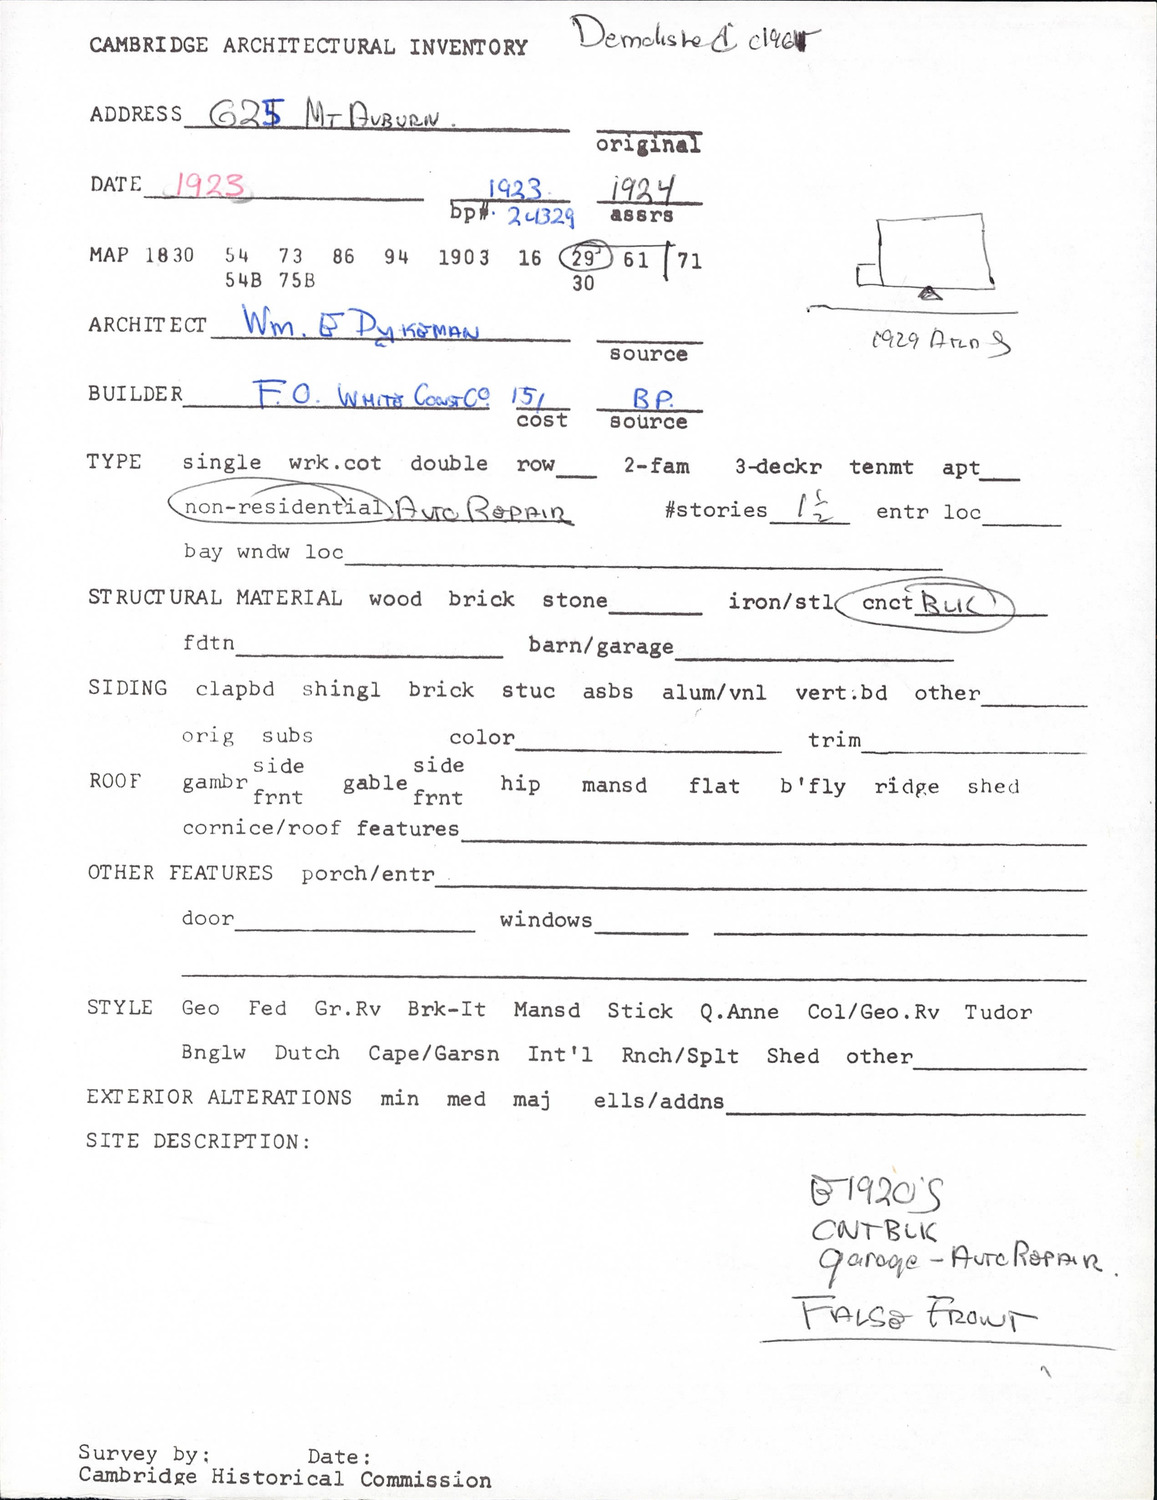 CAMBRIDGE ARCHITECTURAL INVENTORY Demolished
ADDRESS 625 MT AUBURN. original
DATE 1923 1923 1924
bp#. 24329 assrs
MAP 1830 54 73 86 94 1903 16 29 61 71
54B 75B 30
ARCHITECT Wm. E DYKEMAN
source
1929 ATLAS
BUILDER F.O. WHITE CONST CO. 15, BP.
cost source
TYPE single wrk.cot double row 2-fam 3-deckr tenmt apt
non-residential AUTO REPAIR #stories 1½ entr loc
bay wndw loc
STRUCTURAL MATERIAL wood brick stone iron/stl cnct BLK
fdtn barn/garage
SIDING clapbd shingl brick stuc asbs alum/vnl vert.bd other
orig subs color trim
side side
ROOF gambr gable hip mansd flat b'fly ridge shed
frnt frnt
cornice/roof features
OTHER FEATURES porch/entr
door windows
STYLE Geo Fed Gr.Rv Brk-It Mansd Stick Q.Anne Col/Geo.Rv Tudor
Bnglw Dutch Cape/Garsn Int'l Rnch/Splt Shed other
EXTERIOR ALTERATIONS min med maj ells/addns
SITE DESCRIPTION:
E1920'S
CNT BLK
garage - AUTO REPAIR.
FALSE FRONT
Survey by: Date:
Cambridge Historical Commission